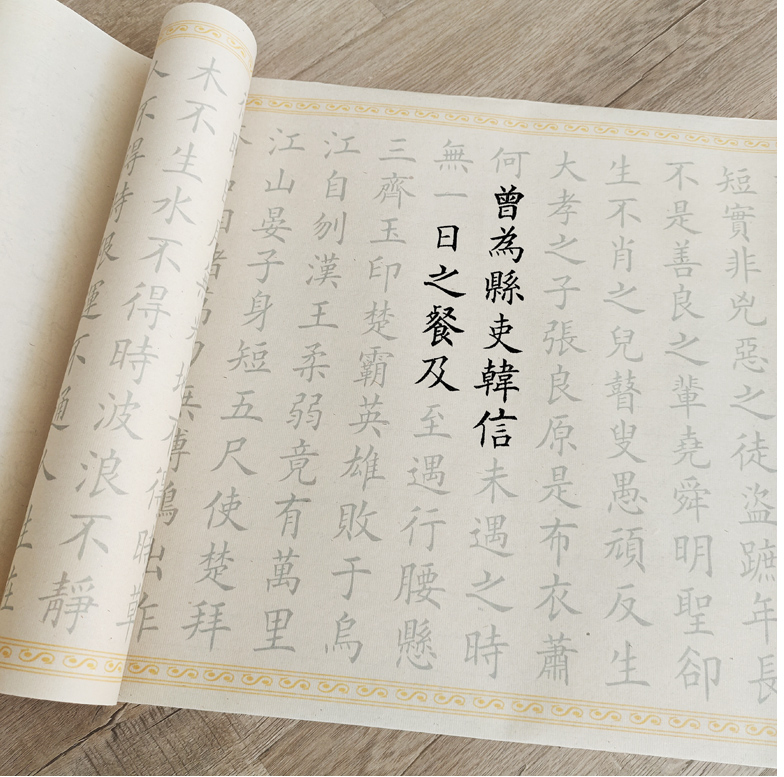 短實非兇惡之徒盜蹠年長
不是善良之輩堯舜明聖卻
生不肖之兒瞽叟愚頑反生
大孝之子張良原是布衣蕭
何曾為縣吏韓信未遇之時
無一日之餐及至遇行腰懸
三齊玉印楚霸英雄敗于烏
江自刎漢王柔弱竟有萬里
江山晏子身短五尺使楚拜
木不生水不得時波浪不靜
不得時